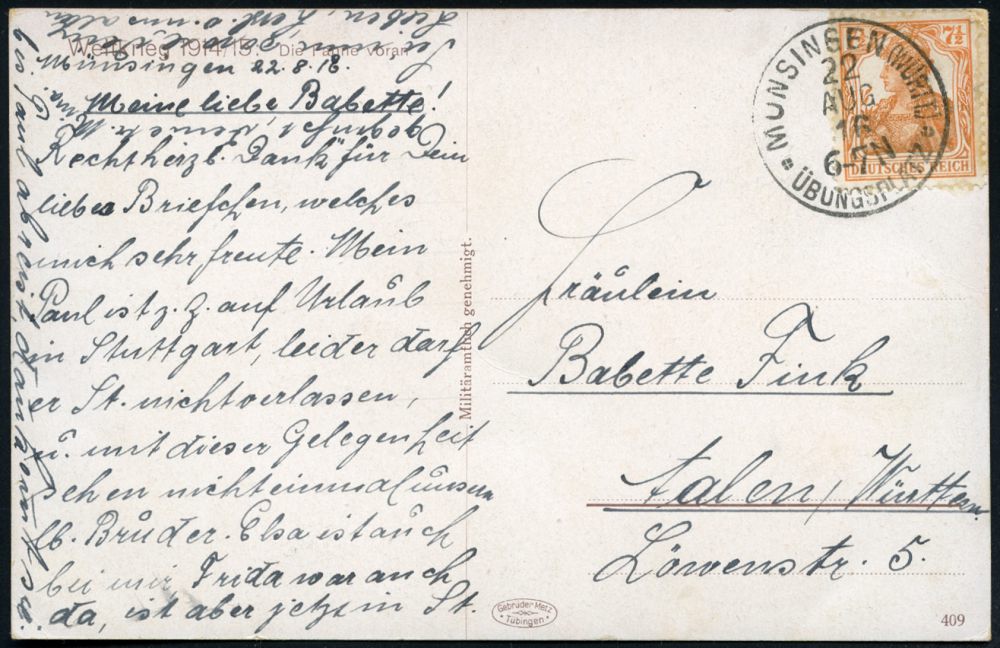 Weltkrieg 1914/15. Die Fahne voran
Münsingen 22.8.16.
Meine liebe Babette!
Recht herzl. Dank für Dein
liebes Briefchen, welches
mich sehr freute. Mein
Paul ist z. Z. auf Urlaub
in Stuttgart, leider darf
er St. nicht verlassen,
u. mit dieser Gelegenheit
sehen nicht einmal unsern
lb. Bruder. Elsa ist auch
bei mir, Frida war auch
da, ist aber jetzt in St.
bis Paul abreist, dann kommt sie
Militäramtlich genehmigt.
MÜNSINGEN (WÜRTT.)
22
AUG
16
6-7N
ÜBUNGSPLATZ
7½
DEUTSCHES REICH
Fräulein
Babette Fink
Aalen, Württem.
Löwenstr. 5.
Gebrüder Metz
Tübingen
409